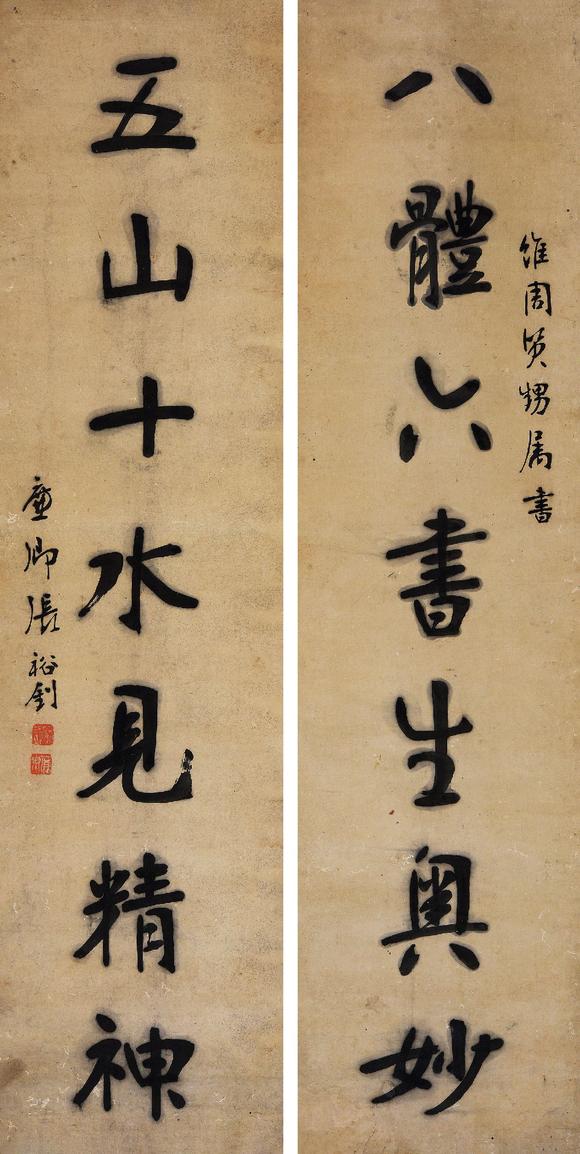 維周賢甥属書
八體六書生奧妙
五山十水見精神
廉卿張裕釗